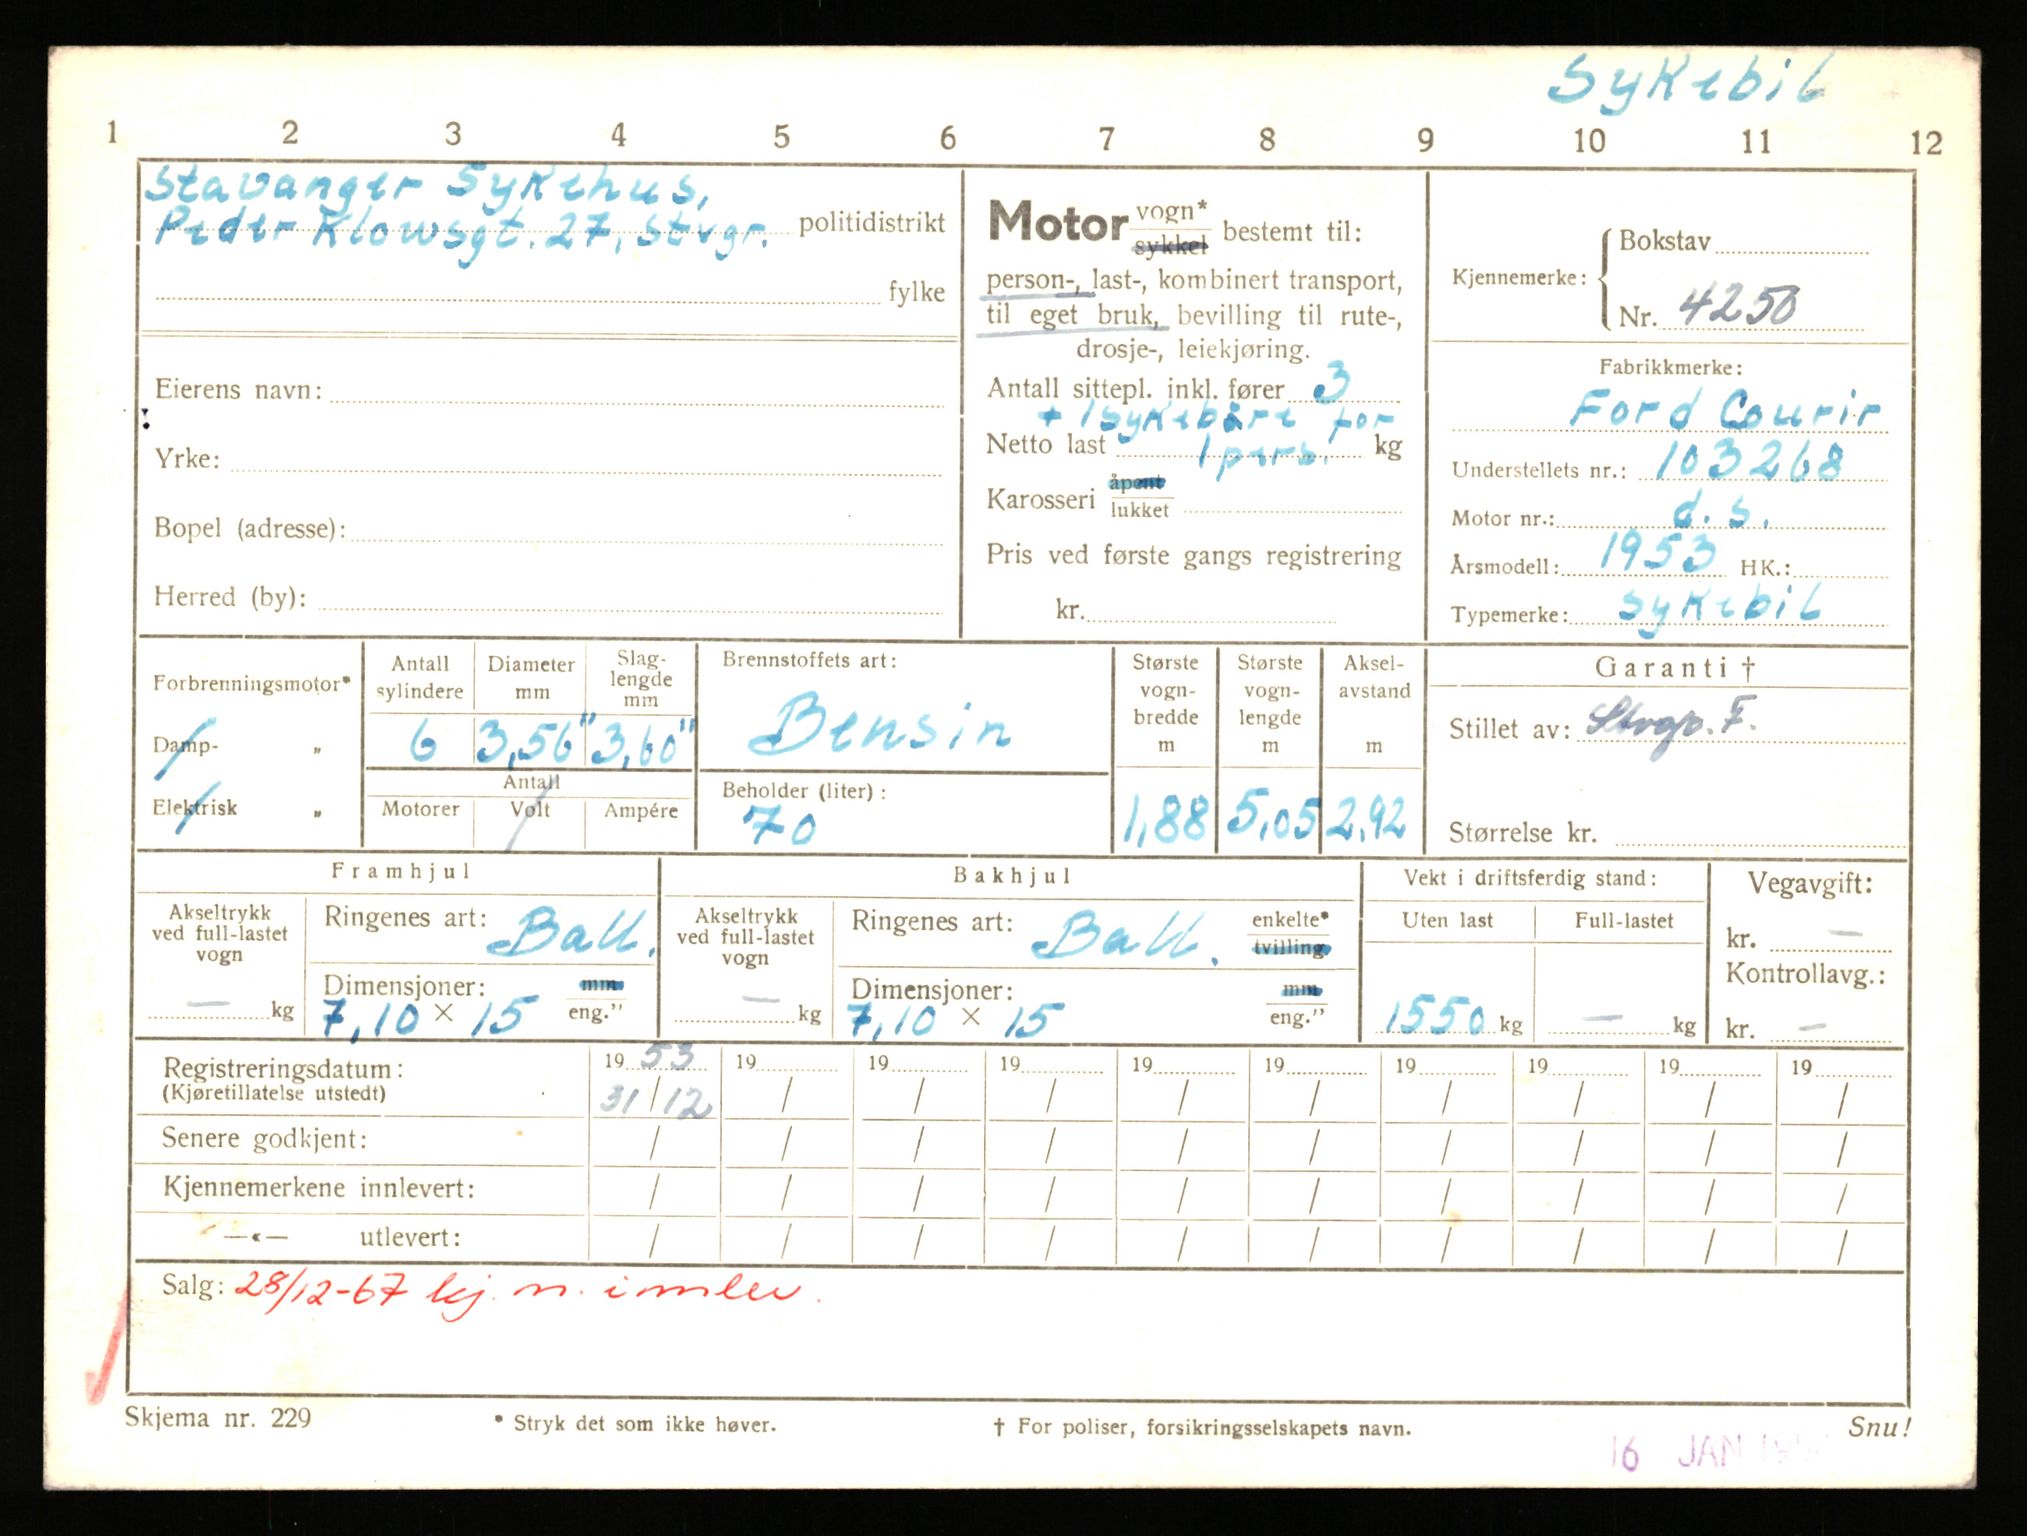 Sykebil
1 2 3 4 5 6 7 8 9 10 11 12
Stavanger Sykehus,
Peder Klowsgt. 27, Stvgr. politidistrikt
fylke
Eierens navn:
Yrke:
Bopel (adresse):
Herred (by):
Motor vogn* sykkel bestemt til:
person-, last-, kombinert transport,
til eget bruk, bevilling til rute-,
drosje-, leiekjøring.
Antall sittepl. inkl. fører 3
+ 1 sykebåre for
Netto last 1 pers. kg
Karosseri åpent lukket
Pris ved første gangs registrering
kr.
Kjennemerke: Bokstav
Nr. 4250
Fabrikkmerke:
Ford Courir
Understellets nr.: 103268
Motor nr.: d. s.
Årsmodell: 1953 HK.:
Typemerke: Sykebil
Forbrenningsmotor*
Damp- „
Elektrisk „
Antall sylindere
6
Diameter mm
3,56"
Slag-lengde mm
3,60"
Antall
Motorer Volt Ampére
Brennstoffets art:
Bensin
Beholder (liter):
70
Største vogn-bredde m
1,88
Største vogn-lengde m
5,05
Aksel-avstand m
2,92
Garanti †
Stillet av:
Størrelse kr.
Framhjul
Akseltrykk
ved full-lastet
vogn
— kg
Ringenes art: Ball.
Dimensjoner: mm
7,10 × 15 eng."
Bakhjul
Akseltrykk
ved full-lastet
vogn
— kg
Ringenes art: Ball. enkelte* tvilling
Dimensjoner: mm
7,10 × 15 eng."
Vekt i driftsferdig stand:
Uten last Full-lastet
1550 kg — kg
Vegavgift:
kr. —
Kontrollavg.:
kr. —
Registreringsdatum: 1953 19 19 19 19 19 19 19 19 19
(Kjøretillatelse utstedt) 31/12 / / / / / / / / /
Senere godkjent: / / / / / / / / / /
Kjennemerkene innlevert: / / / / / / / / / /
—«— utlevert: / / / / / / / / / /
Salg: 28/12-67 kj. n. innlev.
Skjema nr. 229
* Stryk det som ikke høver.
† For poliser, forsikringsselskapets navn.
Snu!
16 JAN